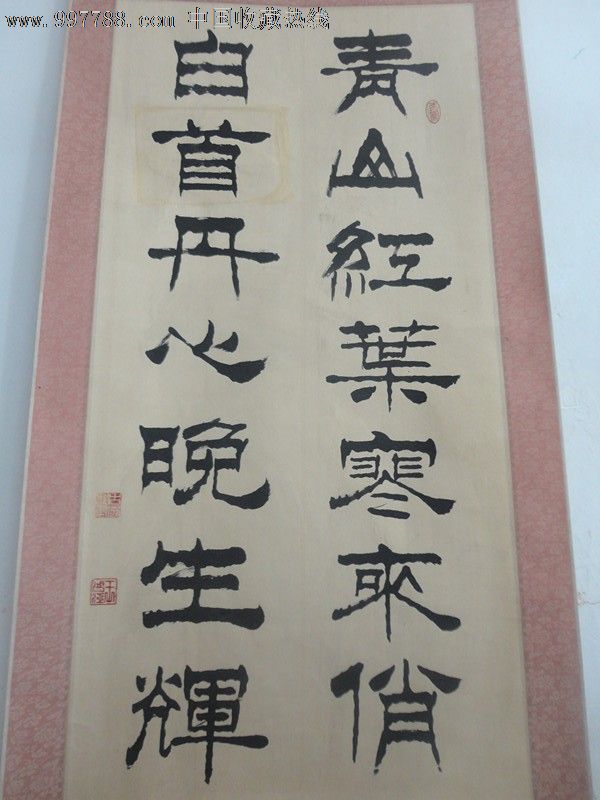 www.997788.com 中国收藏热线
青山紅葉寒來俏
白首丹心晚生輝